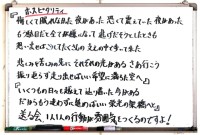 ホスピタリティ
悔しくて眠れない夜があった 恐くて震えてた夜があった
もう駄目だと全てが嫌になって 逃げ出そうとした時も
思い出せばこうしてたくさんの支えの中で歩いて来た
悲しみや苦しみの先に それぞれの光がある さあ行こう
振り返らず走り出せばいい 希望に満ちた空へ
「いくつもの日々を越えて 辿り着いた今がある
だからもう迷わずに進めばいい 栄光の架橋へと
送る会、1人1人の行動が雰囲気をつくるのですよ！